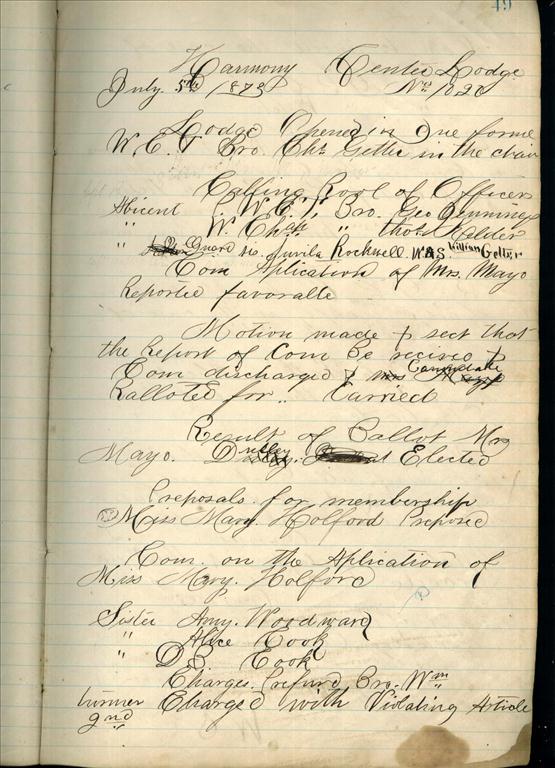 49
Harmony Center Lodge
July 5th 1873 No 1020
Lodge Opened in Due forme
W. C. T Bro. Chs Getter in the chair
Calling Rool of Officers
Abicent P. W. C. T. Bro. Geo Jennings
" W. Chap " Thos Calder
" I. Guard sis. Luvila Rockwell. W.A.S. William Getter
Com Aplication of Mrs. Mayo
Reported favorable
Motion made & sect that
the Report of Com Be recived &
Com discharged & Canidate
Balloted for. " Carried
Result of Ballot Mrs
Mayo. Duley Elected
Preposals for membership
Miss Mary. Holford Preposed
Com. on the Aplication of
Miss Mary. Holford
Sister Amy. Woodward
" Alice Cook
" D. E. Cook
Charges. prefurd Bro. Wm
Turner Charged with Violating Article
2nd